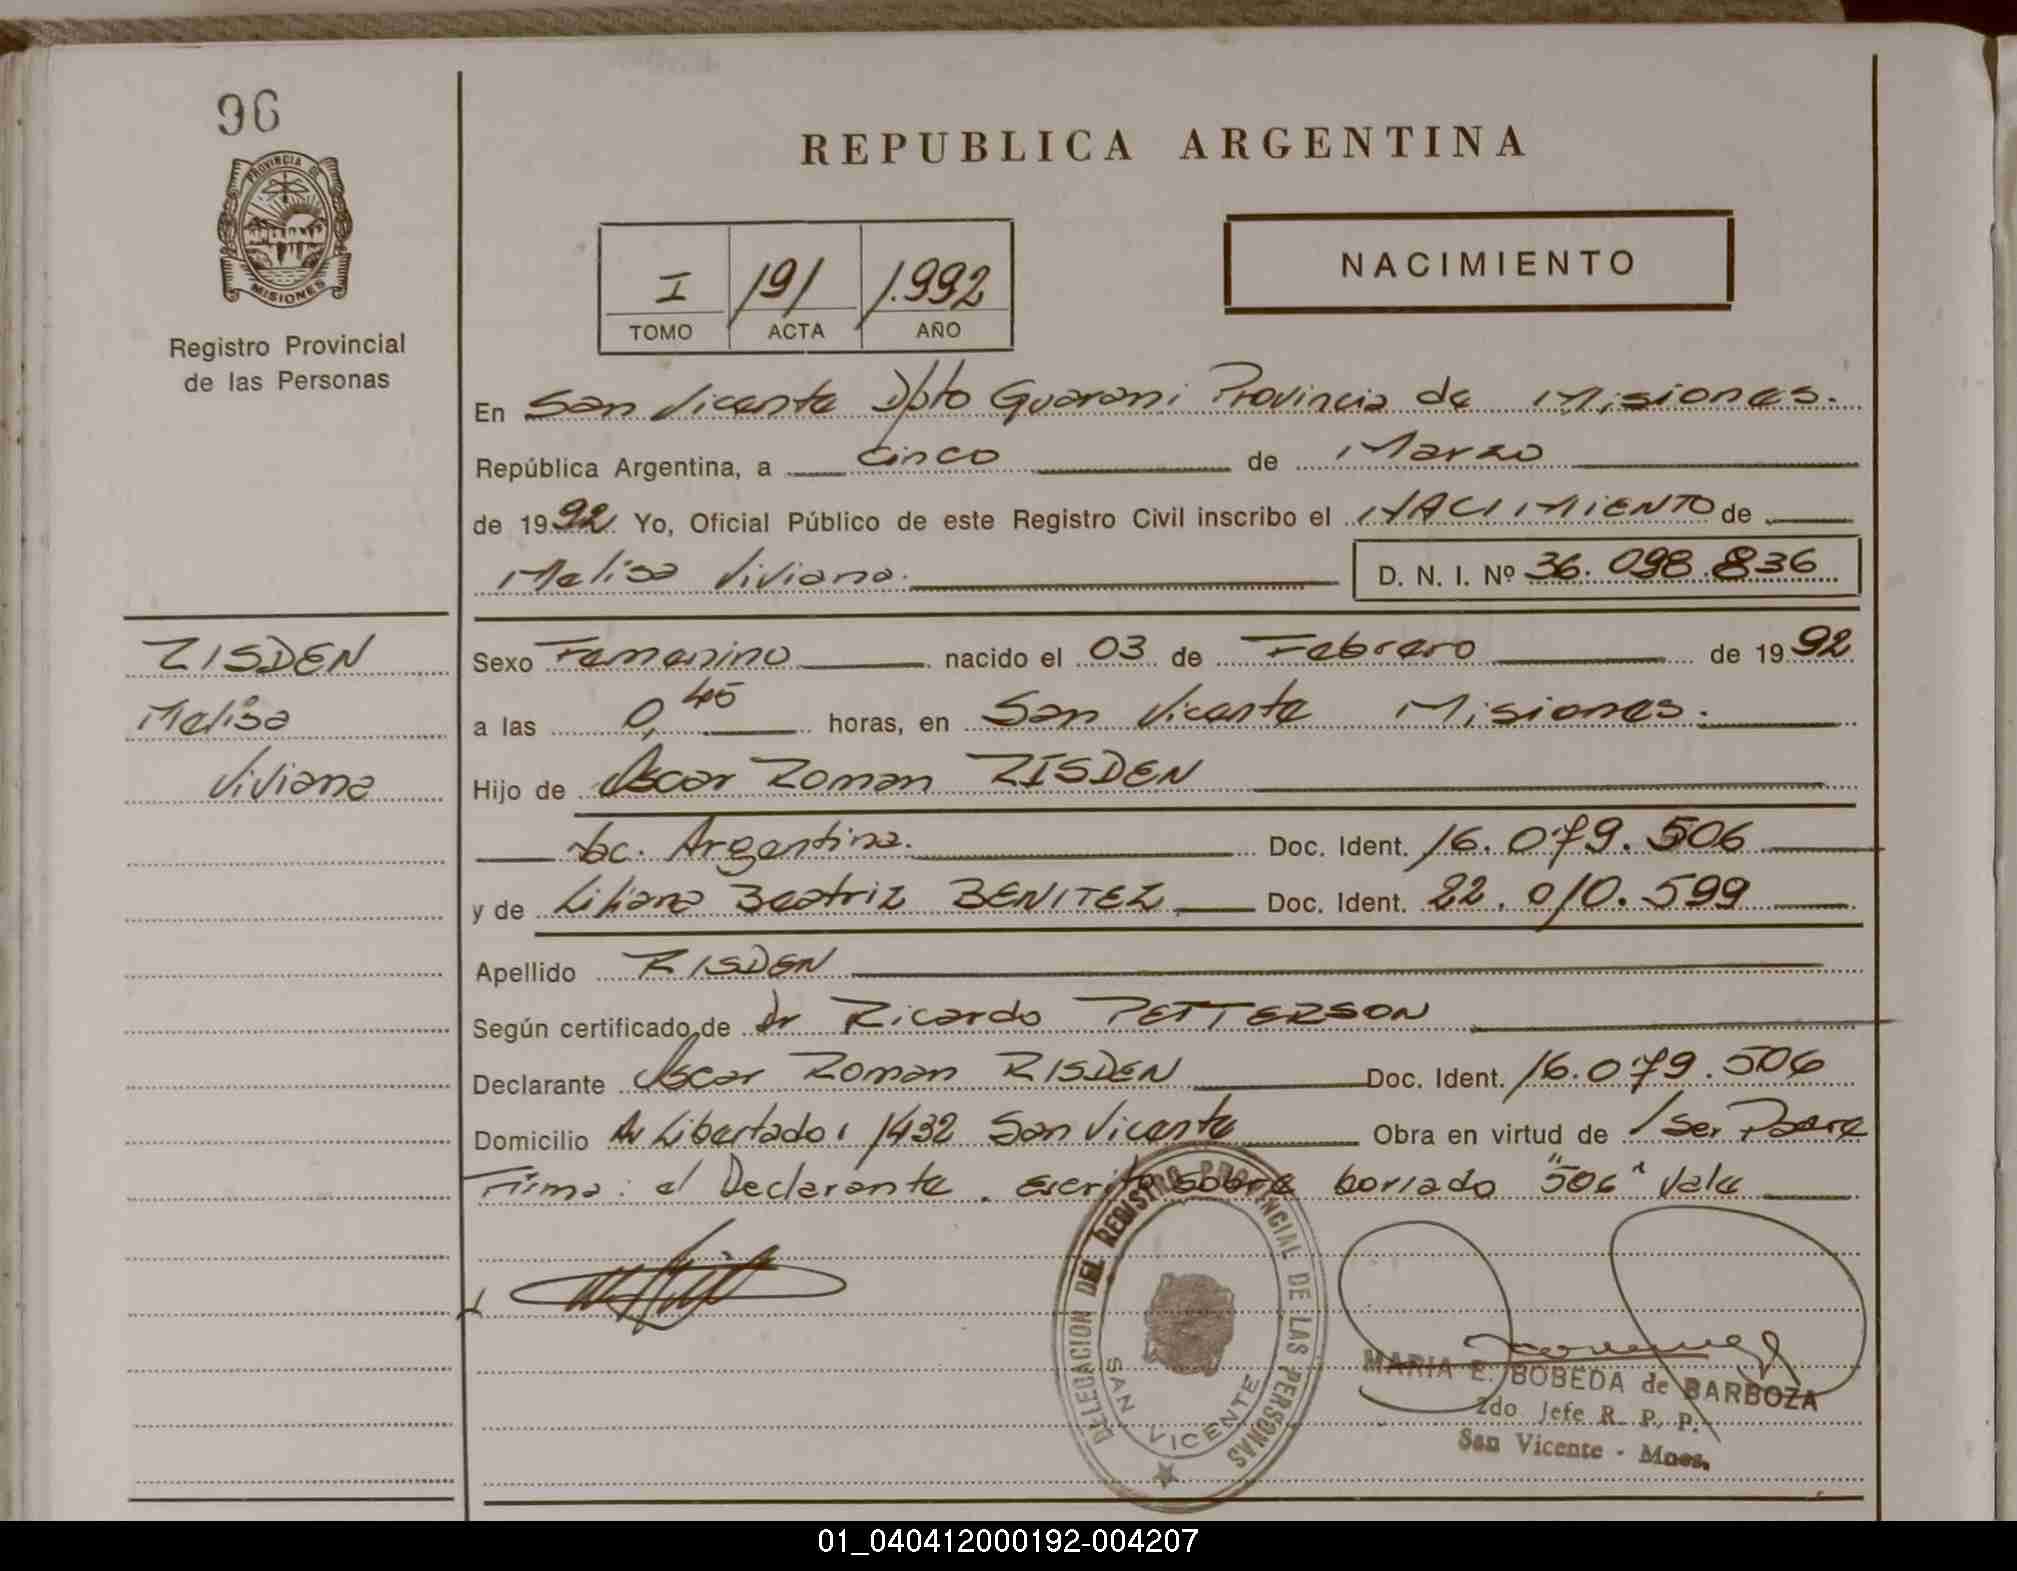 96
PROVINCIA DE
MISIONES
Registro Provincial
de las Personas
REPUBLICA ARGENTINA
I 191 1.992
TOMO ACTA AÑO
NACIMIENTO
En San Vicente Dpto Guarani Provincia de Misiones.
República Argentina, a cinco de Marzo
de 1992 Yo, Oficial Público de este Registro Civil inscribo el NACIMIENTO de
Melisa Viviana. D. N. I. Nº 36.098.836
RISDEN
Melisa
Viviana
Sexo Femenino nacido el 03 de Febrero de 1992
a las 0,45 horas, en San Vicente Misiones.
Hijo de Oscar Roman RISDEN
Nac. Argentina. Doc. Ident. 16.079.506
y de Liliana Beatriz BENITEZ Doc. Ident. 22.010.599
Apellido RISDEN
Según certificado de Dr Ricardo PETTERSON
Declarante Oscar Roman RISDEN Doc. Ident. 16.079.506
Domicilio Av Libertador 1432 San Vicente Obra en virtud de / Ser Padre
Firma: el Declarante. escrito sobre borrado "506" Vale
DELEGACION DEL REGISTRO PROVINCIAL DE LAS PERSONAS
SAN VICENTE
MARIA E. BOBEDA de BARBOZA
2do Jefe R. P. P.
San Vicente - Mnes.
01_040412000192-004207